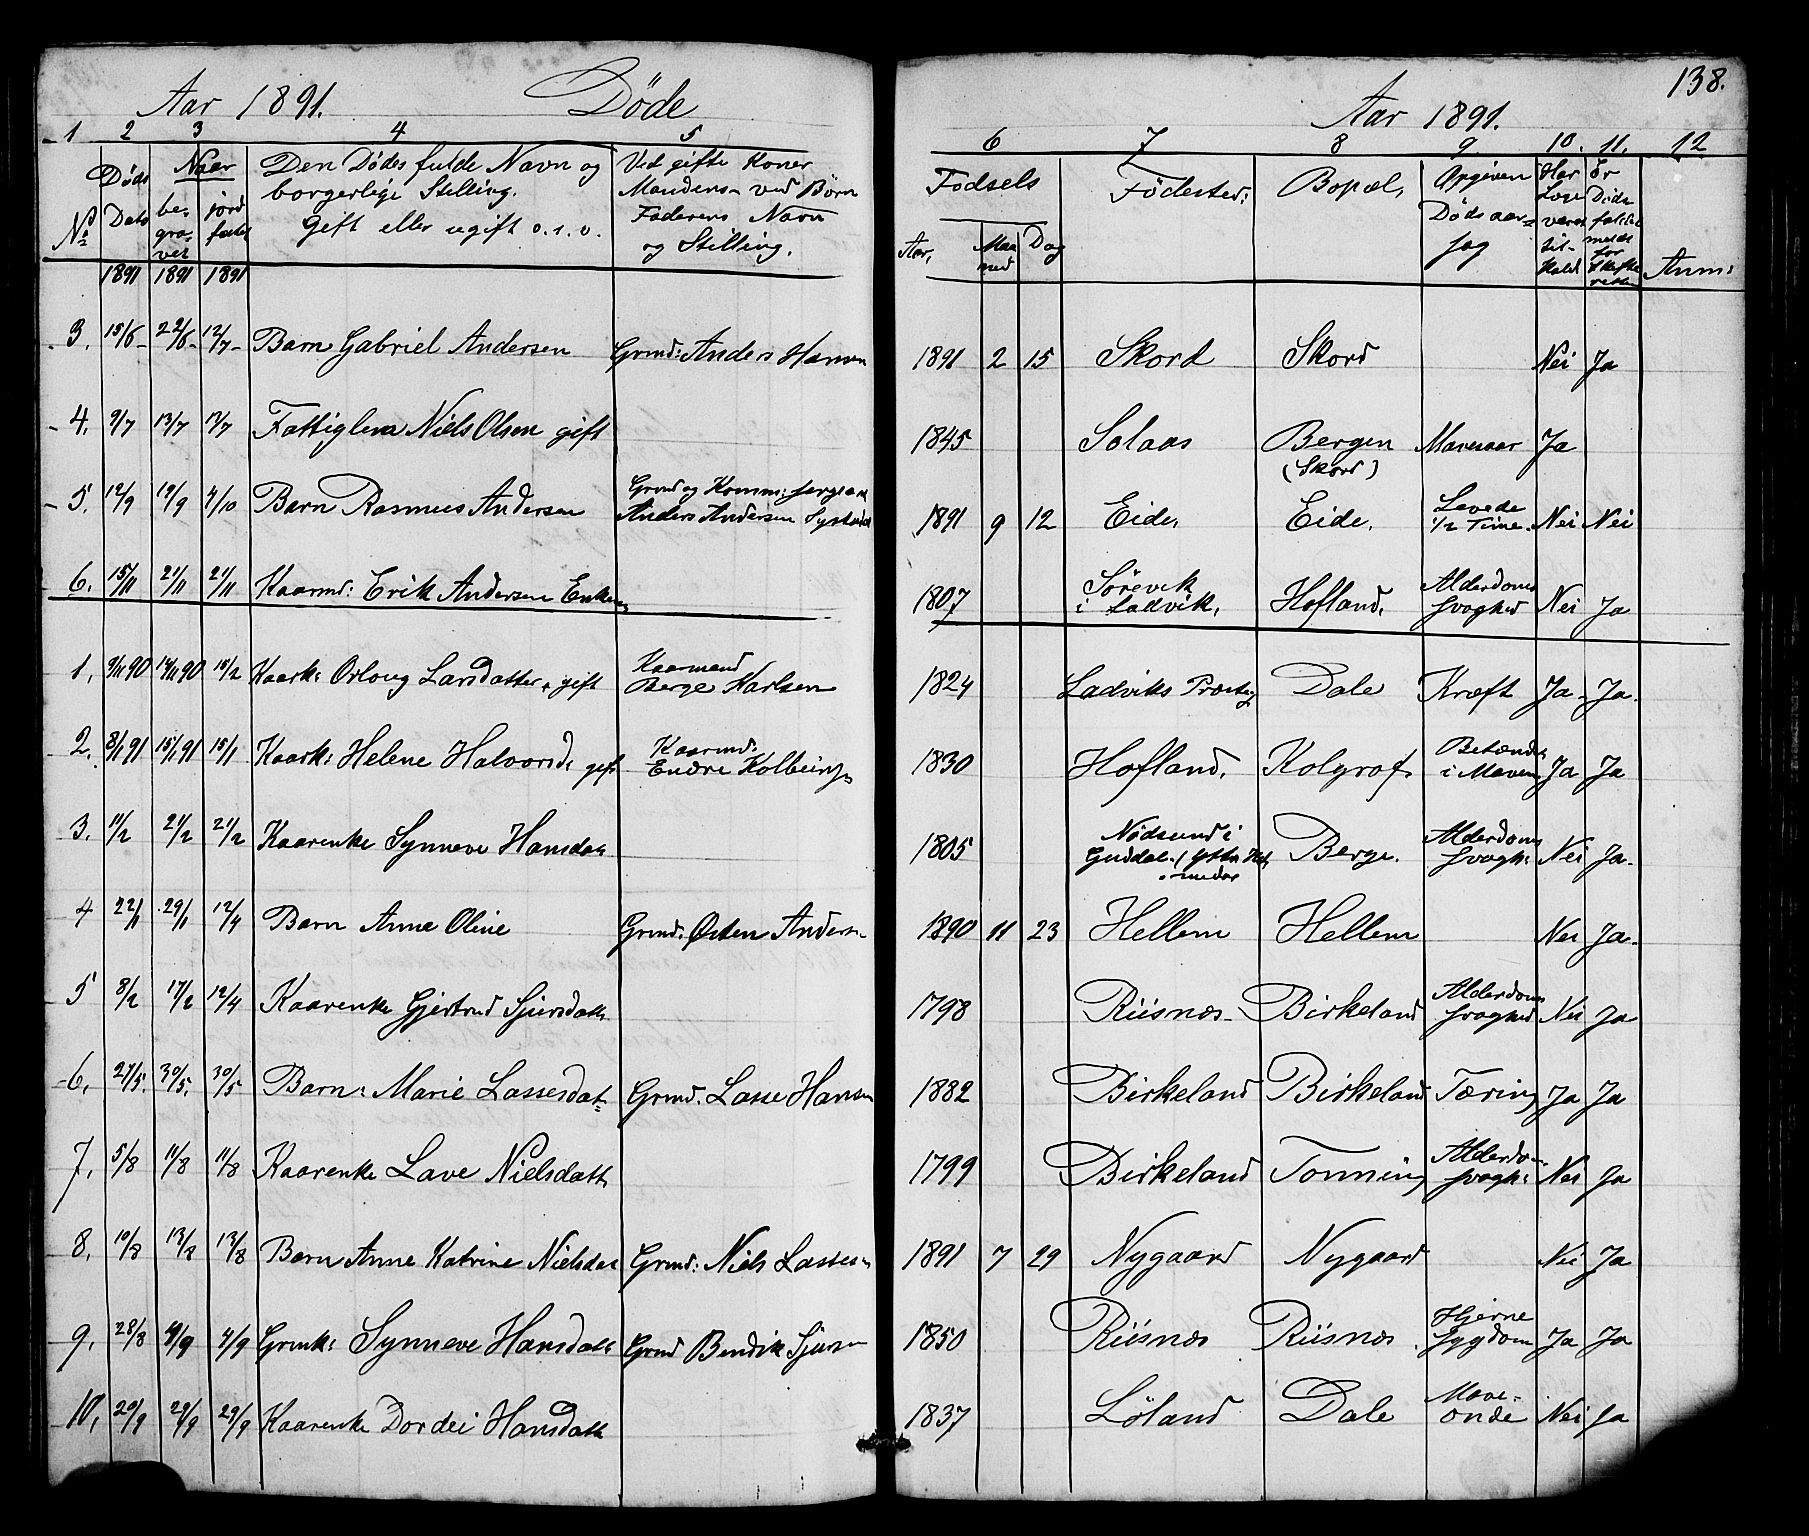 Aar 1891. Døde
1 2 3 4 5
№ Døds Dato Naar begravet jordfæstet Den Dødes fulde Navn og borgerlige Stilling. Gift eller ugift o.s.v. Ved gifte Koner Mandens- ved Børn Faderens Navn og Stilling.
1891 1891 1891
3. 15/6 22/6 12/7 Barn Gabriel Andersen Grmd: Anders Hansen
4. 9/7 13/7 13/7 Fattiglem Niels Olsen gift
5. 12/9 19/9 4/10 Barn Rasmus Andersen Grmd og Anders Andersen
6. 15/11 21/11 21/11 Kaarmd: Erik Andersen Enkem
1. 9/11 90 14/11 90 15/2 Kaark: Orloug Larsdatter, gift Kaarmand Berge Karlsen
2. 8/1 91 15/1 91 15/1 Kaark: Helene Halvorsd: gift Kaarmd: Endre Kolbeins
3. 11/2 21/2 21/2 Kaarenke Synneve Hansdat
4 22/1 29/1 12/4 Barn Anne Oline Grmd: Østen Anders
5 8/2 17/2 12/4 Kaarenke Gjertrud Sjursdatt
6. 27/5. 30/5. 30/5 Barn: Marie Lassesdat Grmd. Lasse Hansen
7. 5/8 11/8 11/8 Kaarenke Lave Nielsdatt
8. 10/8 13/8 13/8 Barn Anne Katrine Nielsdat Grmd: Niels Lassesn
9. 28/8 4/9 4/9 Grmk: Synneve Hansdatt Grmd Bendik Sjursen
10. 20/9 29/9 29/9 Kaarenke Dordei Hansdatt
138.
Aar 1891.
6 7 8 9. 10. 11. 12
Fødsels Aar, Maaned Dag Fødested: Bopæl, Opgiven Dødsaarsag Har Læge været tilkaldt Er Dødsfaldet meldt for Skifteretten Anm:
1891 2 15 Skord Skord Nei Ja
1845 Solaas Bergen (Skord) Mavesaar Ja
1891 9 12 Eide. Eide. Levede 1/2 Time. Nei Nei
1807 Sørevik i Ladvik. Hofland. Alderdoms svaghed Nei Ja
1824 Ladviks Præsteg Dale Kræft Ja Ja.
1830 Hofland. Kolgrof Betændt i Maven Ja Ja
1805 Nødsund i Guddal. Berge. Alderdoms svagh: Nei Ja.
1890 11 23 Hellem Hellem Nei Ja.
1798 Riisnæs Birkeland Alderdoms svaghed Nei Ja
1882 Birkeland Birkeland Tæring Ja Ja
1799 Birkeland Tonning Alderdom svagh: Nei Ja
1891 7 29 Nygaard Nygaard Nei Ja
1850 Riisnæs Riisnæs Hjerne sygdom Ja Ja
1837 Løland Dale Mave- onde Nei Ja